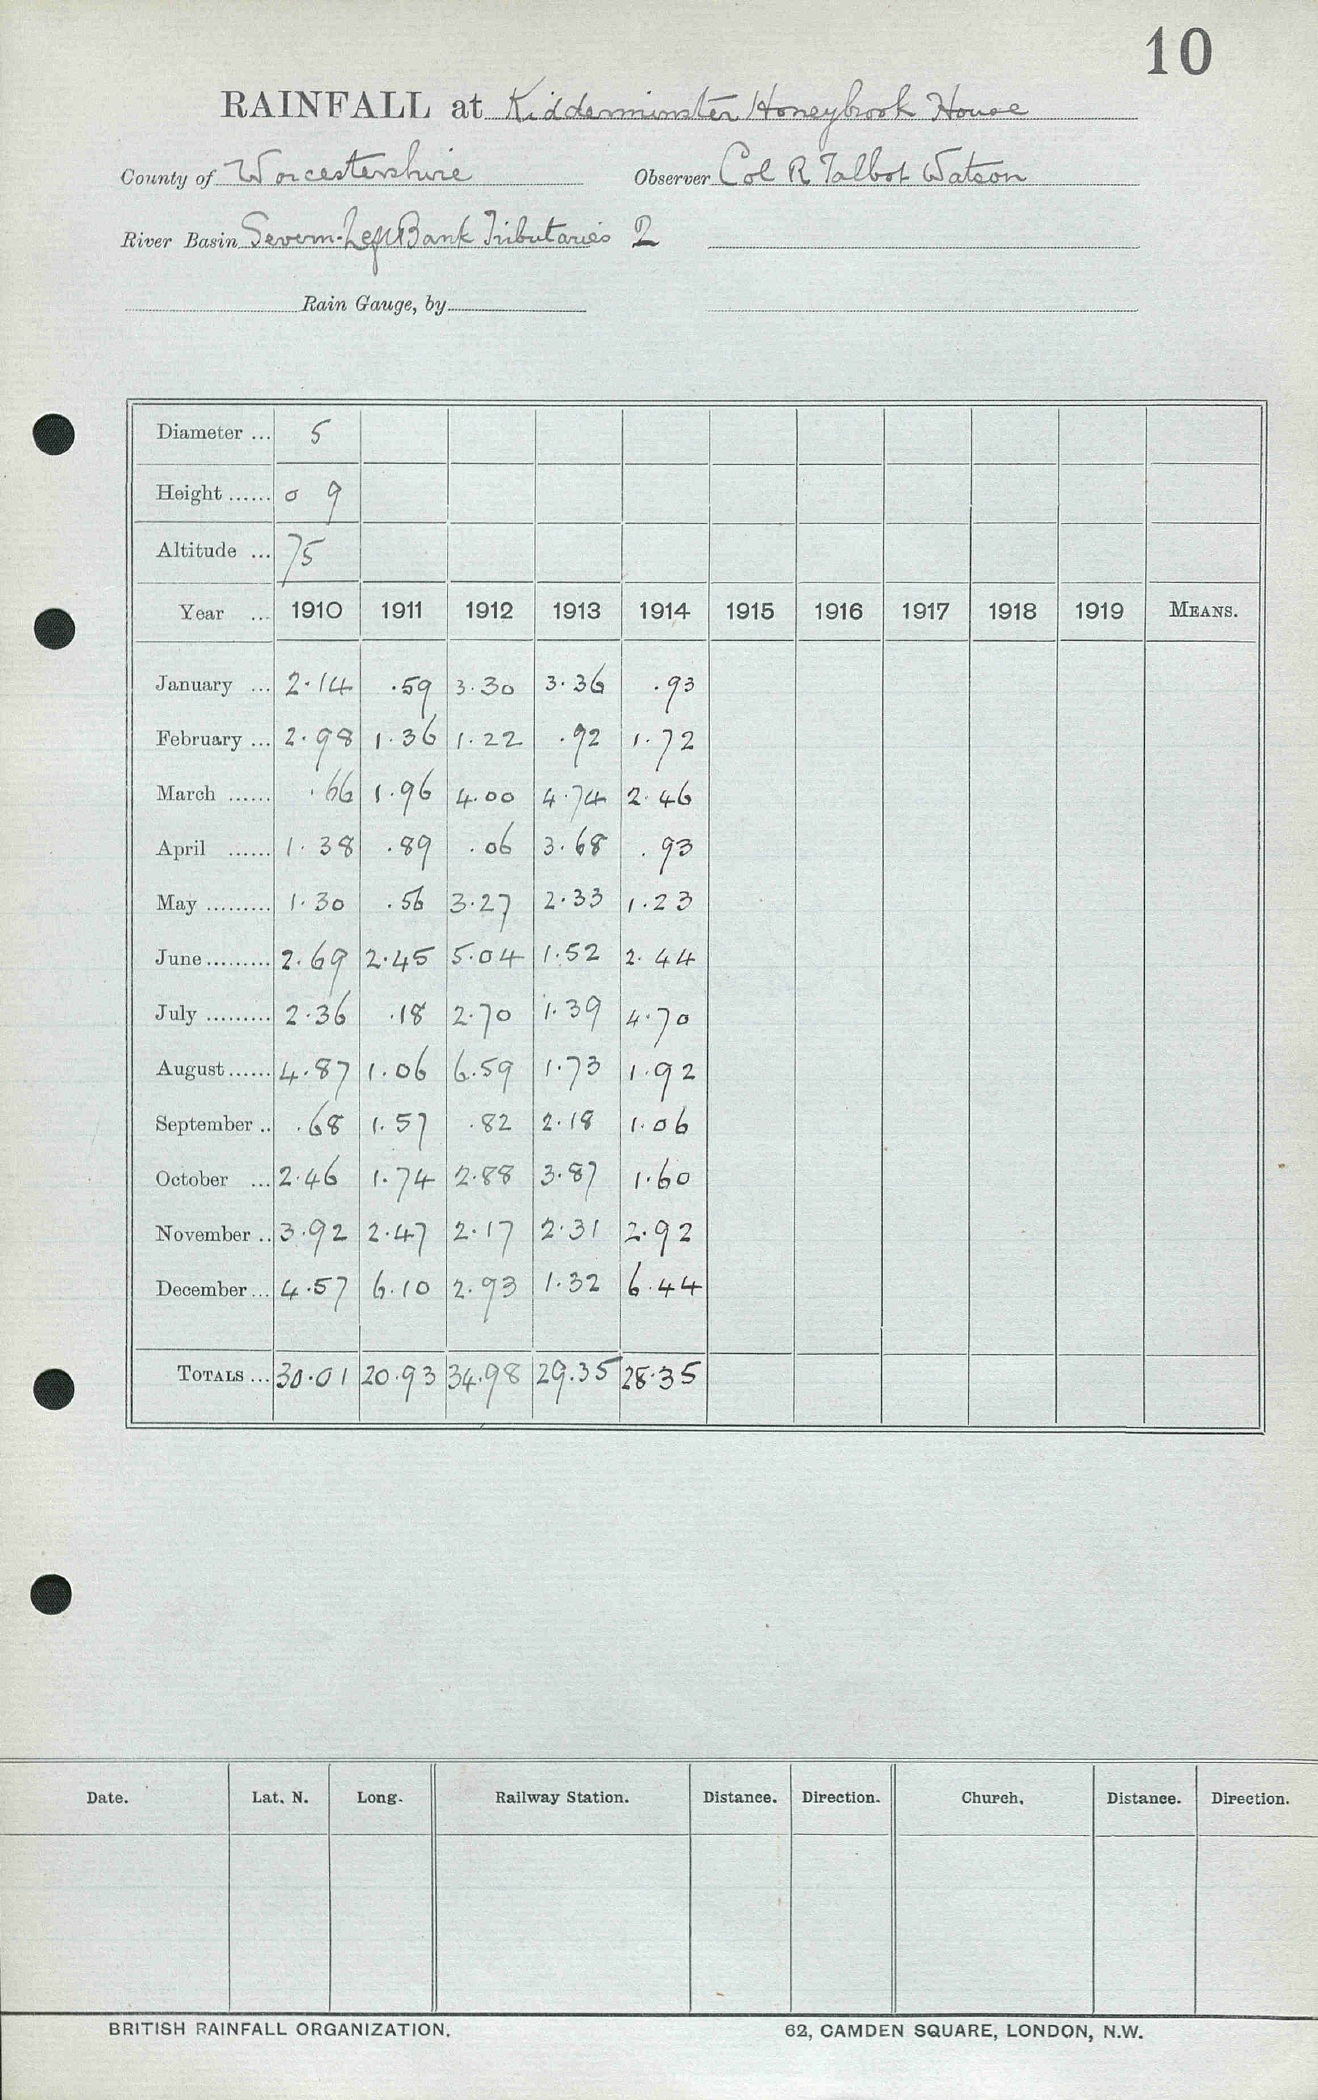 10
RAINFALL at Kidderminster Honeybrook House
County of Worcestershire Observer Col R Talbot Watson
River Basin Severn-Left Bank Tributaries 2
Rain Gauge, by
Diameter ... 5
Height ...... 0 9
Altitude ... 75
Year ... 1910 1911 1912 1913 1914 1915 1916 1917 1918 1919 MEANS.
January ... 2.14 .59 3.30 3.36 .93
February ... 2.98 1.36 1.22 .92 1.72
March ...... .66 1.96 4.00 4.74 2.46
April ...... 1.38 .89 .06 3.68 .93
May ......... 1.30 .56 3.27 2.33 1.23
June ......... 2.69 2.45 5.04 1.52 2.44
July ......... 2.36 .18 2.70 1.39 4.70
August ...... 4.87 1.06 6.59 1.73 1.92
September .. .68 1.57 .82 2.18 1.06
October ... 2.46 1.74 2.88 3.87 1.60
November .. 3.92 2.47 2.17 2.31 2.92
December ... 4.57 6.10 2.93 1.32 6.44
TOTALS ... 30.01 20.93 34.98 29.35 28.35
Date. Lat. N. Long. Railway Station. Distance. Direction. Church. Distance. Direction.
BRITISH RAINFALL ORGANIZATION. 62, CAMDEN SQUARE, LONDON, N.W.